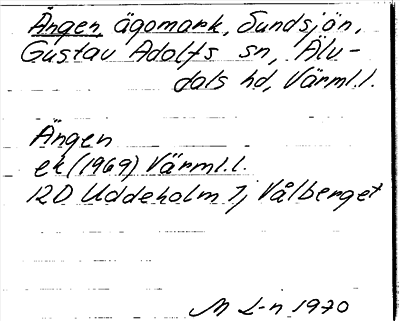 Ängen, ägomark, Sundsjön,
Gustav Adolfs sn, Älv-
dals hd, Värml.l.
Ängen
ek (1969) Värml.l.
12D Uddeholm 7j, Vålberget
M L-n 1970